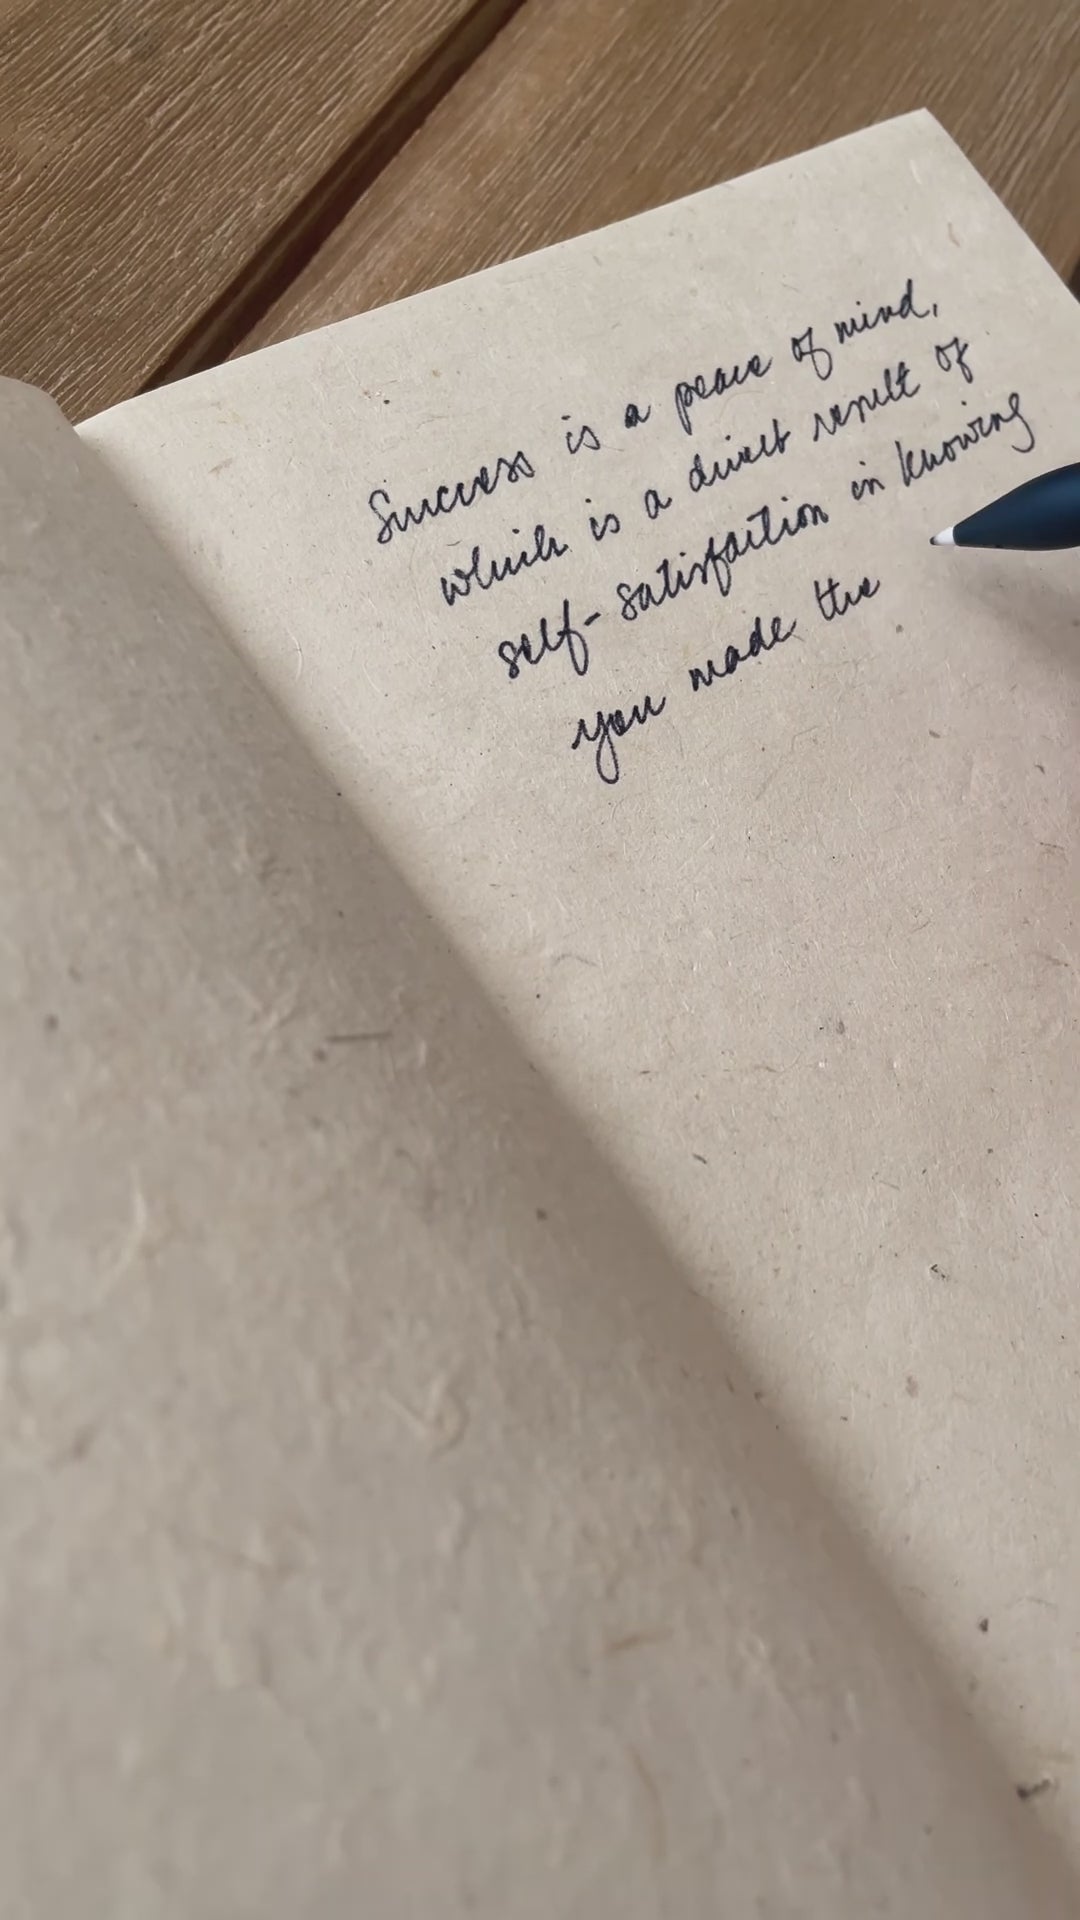 Success is a peace of mind,
which is a direct result of
self-satisfaction in knowing
you made the